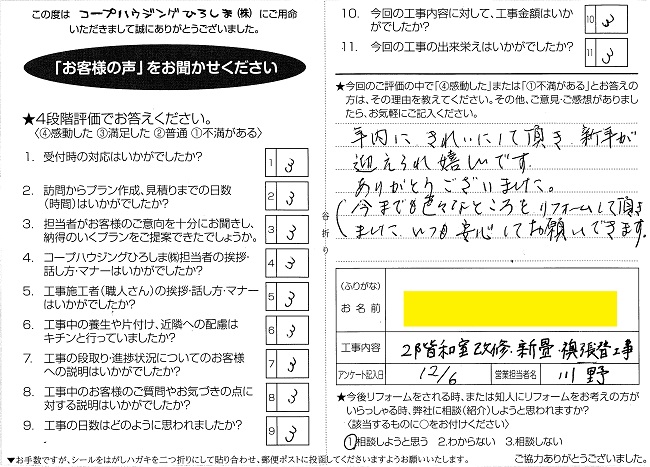 この度は コープハウジングひろしま(株) にご用命
いただきまして誠にありがとうございました。
「お客様の声」をお聞かせください
★4段階評価でお答えください。
〈④感動した ③満足した ②普通 ①不満がある〉
1. 受付時の対応はいかがでしたか? 1 3
2. 訪問からプラン作成、見積りまでの日数
(時間)はいかがでしたか? 2 3
3. 担当者がお客様のご意向を十分にお聞きし、
納得のいくプランをご提案できたでしょうか。 3 3
4. コープハウジングひろしま㈱担当者の挨拶・
話し方・マナーはいかがでしたか? 4 3
5. 工事施工者(職人さん)の挨拶・話し方・マナー
はいかがでしたか? 5 3
6. 工事中の養生や片付け、近隣への配慮は
キチンと行っていましたか? 6 3
7. 工事の段取り・進捗状況についてのお客様
への説明はいかがでしたか? 7 3
8. 工事中のお客様のご質問やお気づきの点に
対する説明はいかがでしたか? 8 3
9. 工事の日数はどのように思われましたか? 9 3
谷折り
10. 今回の工事内容に対して、工事金額はいか
がでしたか? 10 3
11. 今回の工事の出来栄えはいかがでしたか? 11 3
★今回のご評価の中で「④感動した」または「①不満がある」とお答えの
方は、その理由を教えてください。その他、ご意見・ご感想がありまし
たら、お気軽にご記入ください。
年内に きれいにして頂き 新年が
迎えられ嬉しいです。
ありがとうございました。
(今までも色々なところをリフォームして頂き
ました いつも安心してお願いできます。
(ふりがな)
お名前
工事内容 2階和室改修・新畳・襖張替工事
アンケート記入日 12/6 営業担当者名 川野
★今後リフォームをされる時、または知人にリフォームをお考えの方が
いらっしゃる時、弊社に相談(紹介)しようと思われますか?
〈該当するものに○をお付けください〉
①相談しようと思う 2.わからない 3.相談しない
▼お手数ですが、シールをはがしハガキを二つ折りにして貼り合わせ、郵便ポストに投函してくださいますようお願いいたします。
ご協力ありがとうございました。